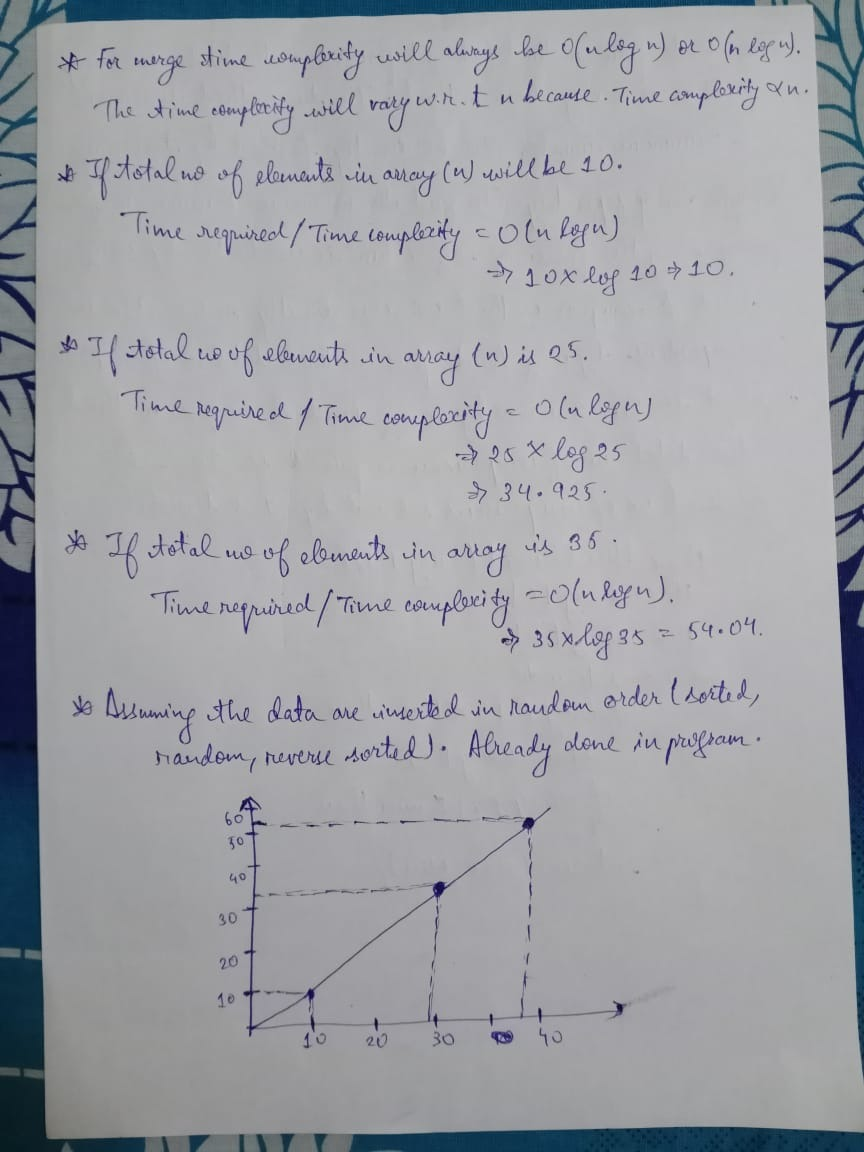 * For merge time complexity will always be O(n log n) or O(n log n).
The time complexity will vary w.r.t n because. Time complexity ∝ n.
* If total no of elements in array (n) will be 10.
Time required / Time complexity = O(n log n)
⇒ 10 × log 10 ⇒ 10.
* If total no of elements in array (n) is 25.
Time required / Time complexity = O(n log n)
⇒ 25 × log 25
⇒ 34.925.
* If total no of elements in array is 35.
Time required / Time complexity = O(n log n).
⇒ 35 × log 35 = 54.04.
* Assuming the data are inserted in random order (sorted,
random, reverse sorted). Already done in program.
60
50
40
30
20
10
10 20 30 40